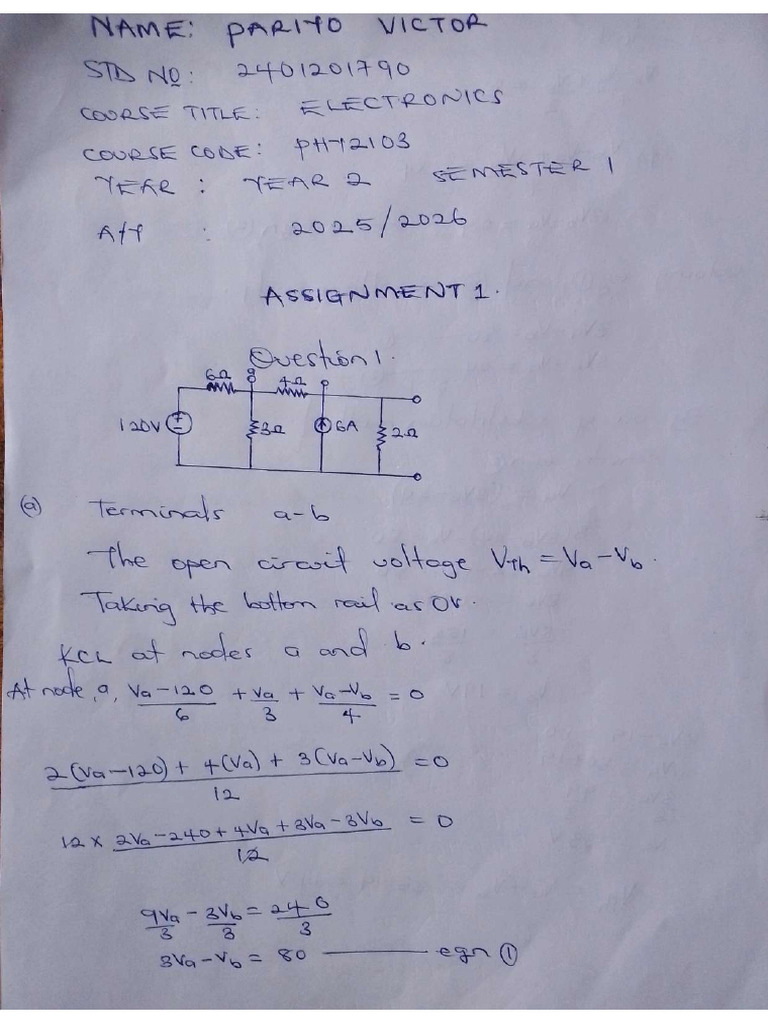 NAME: PARIYO VICTOR
STD NO: 2401201790
COURSE TITLE: ELECTRONICS
COURSE CODE: PHY2103
YEAR : YEAR 2 SEMESTER 1
A/Y : 2025/2026
ASSIGNMENT 1.
Question 1.
6Ω a 4Ω b
120V 3Ω 6A 2Ω
(a) Terminals a-b
The open circuit voltage VTh = Va - Vb.
Taking the bottom rail as 0V.
KCL at nodes a and b.
At node, a, (Va - 120)/6 + Va/3 + (Va - Vb)/4 = 0
(2(Va - 120) + 4(Va) + 3(Va - Vb))/12 = 0
12 × (2Va - 240 + 4Va + 3Va - 3Vb)/12 = 0
9Va/3 - 3Vb/3 = 240/3
3Va - Vb = 80 ——— eqn ①